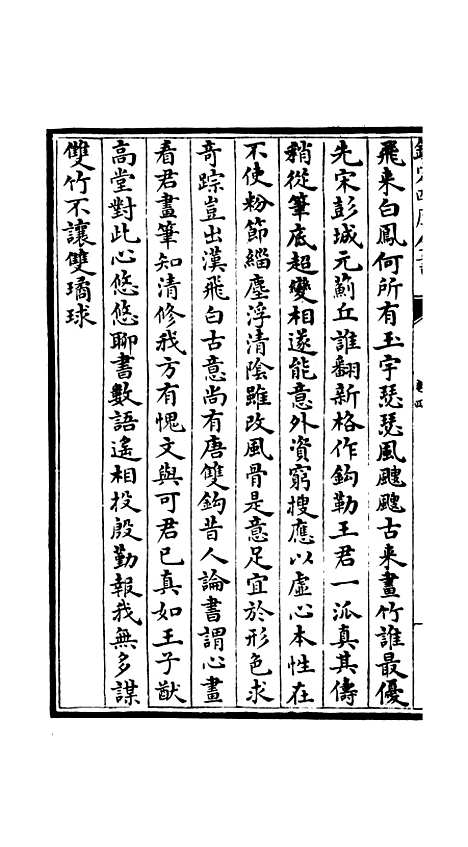 飛来白鳳何所有玉宇瑟瑟風颼颼古来畫竹誰最優
先宋彭城元薊丘誰翻新格作鈎勒王君一派真其儔
稍從筆底超變相遂能意外資窮搜應以虛心本性在
不使粉節緇塵浮清陰雖改風骨是意足宜於形色求
奇踪豈出漢飛白古意尚有唐雙鈎昔人論書謂心畫
看君畫筆知清修我方有愧文與可君已真如王子猷
高堂對此心悠悠聊書數語遙相投殷勤報我無多謀
雙竹不讓雙璚球